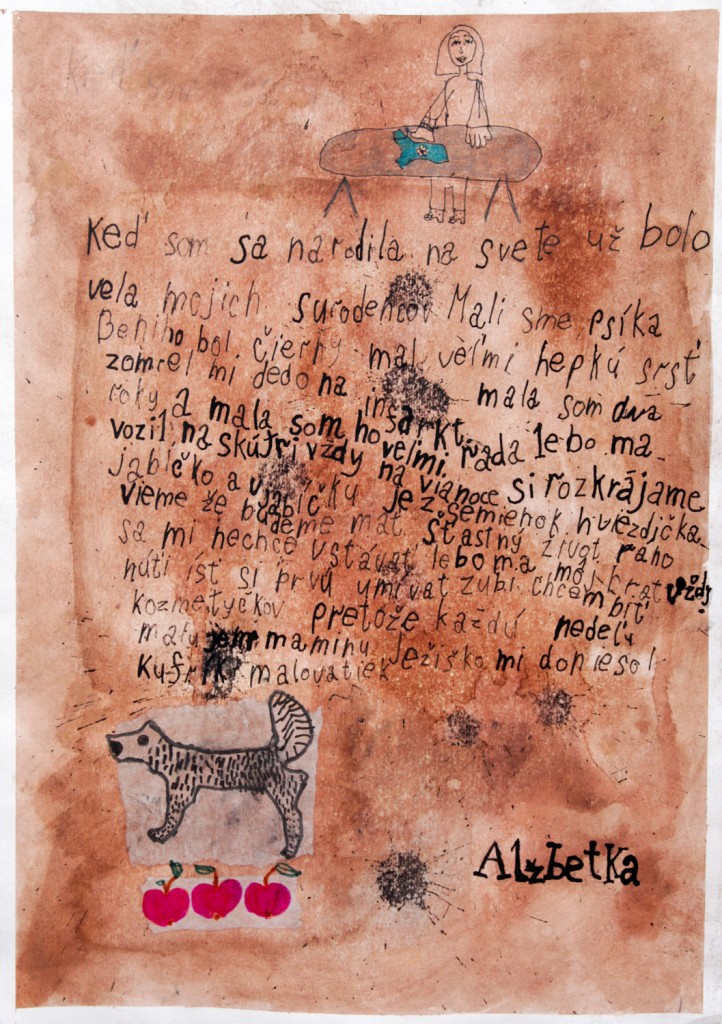 Keď som sa narodila na svete už bolo
vela mojich surodencov Mali sme psíka
Beniho bol čierny mal veľmi hepkú srsť
zomrel mi dedo na insarkt. mala som dva
roky a mala som ho veľmi rada lebo ma
vozil na skútri vždy na vianoce si rozkrájame
jabĺčko a v jabĺčku je z semienok hviezdička
vieme že budeme mať šťastný život ráno
sa mi nechce vstávať lebo ma môj brat vždy
núti ísť si prvú umívat zubi chcem biť
kozmetyčkov pretože každú nedeľu
malujem maminu Ježiško mi doniesol
Kufrík malovatiek
Alžbetka